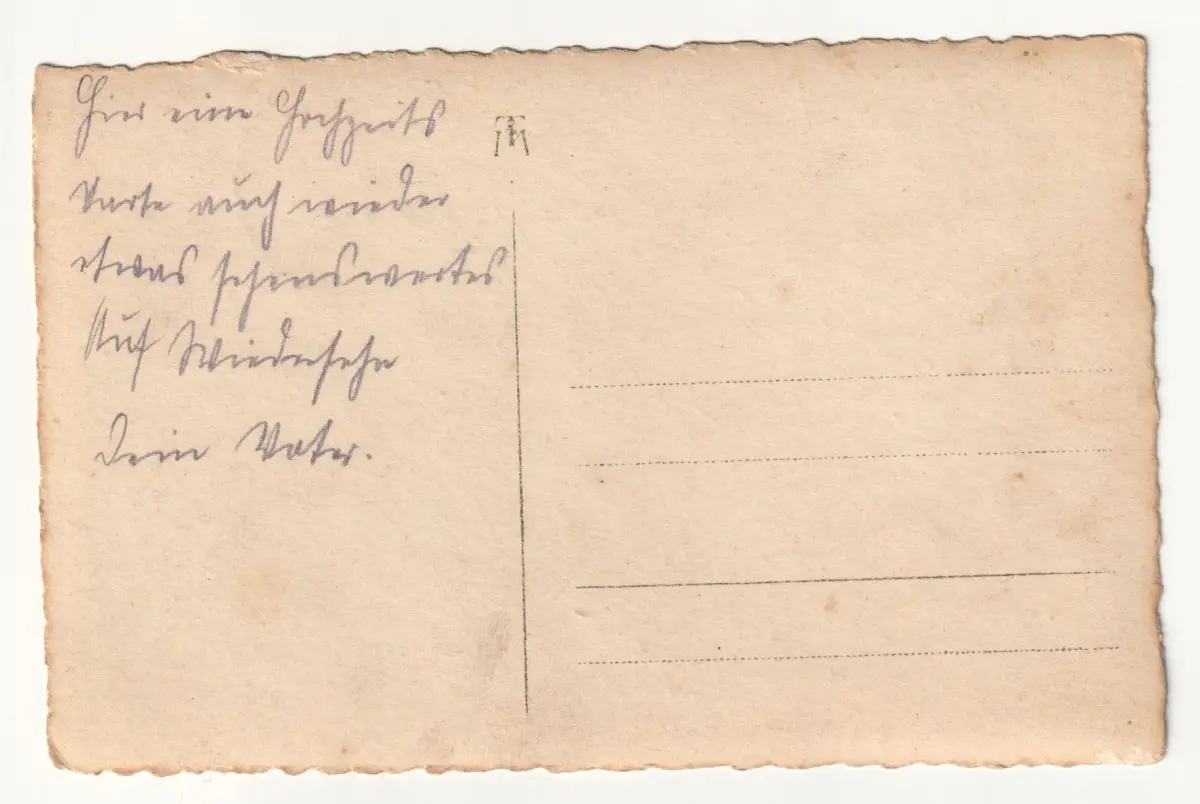 Hier eine Hochzeits
Karte auch wieder
etwas sehenswertes
Auf Wiedersehn
Dein Vater.